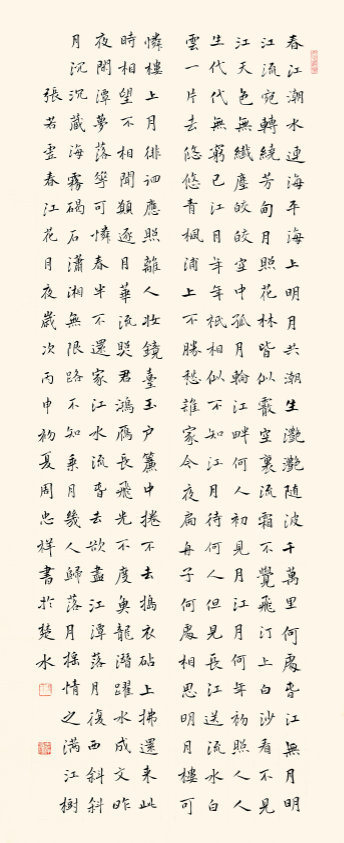 春江潮水連海平海上明月共潮生灧灧隨波千萬里何處春江無月明
江流宛轉繞芳甸月照花林皆似霰空裏流霜不覺飛汀上白沙看不見
江天色無纖塵皎皎空中孤月輪江畔何人初見月江月何年初照人人
生代代無窮已江月年年祗相似不知江月待何人但見長江送流水白
雲一片去悠悠青楓浦上不勝愁誰家今夜扁舟子何處相思明月樓可
憐樓上月徘徊應照離人妝鏡臺玉户簾中捲不去搗衣砧上拂還来此
時相望不相聞願逐月華流照君鴻雁長飛光不度魚龍潛躍水成文昨
夜閒潭夢落華可憐春半不還家江水流春去欲盡江潭落月復西斜斜
月沉沉藏海霧碣石瀟湘無限路不知乘月幾人歸落月摇情之滿江樹
張若虚春江花月夜歲次丙申初夏周忠祥書於楚水